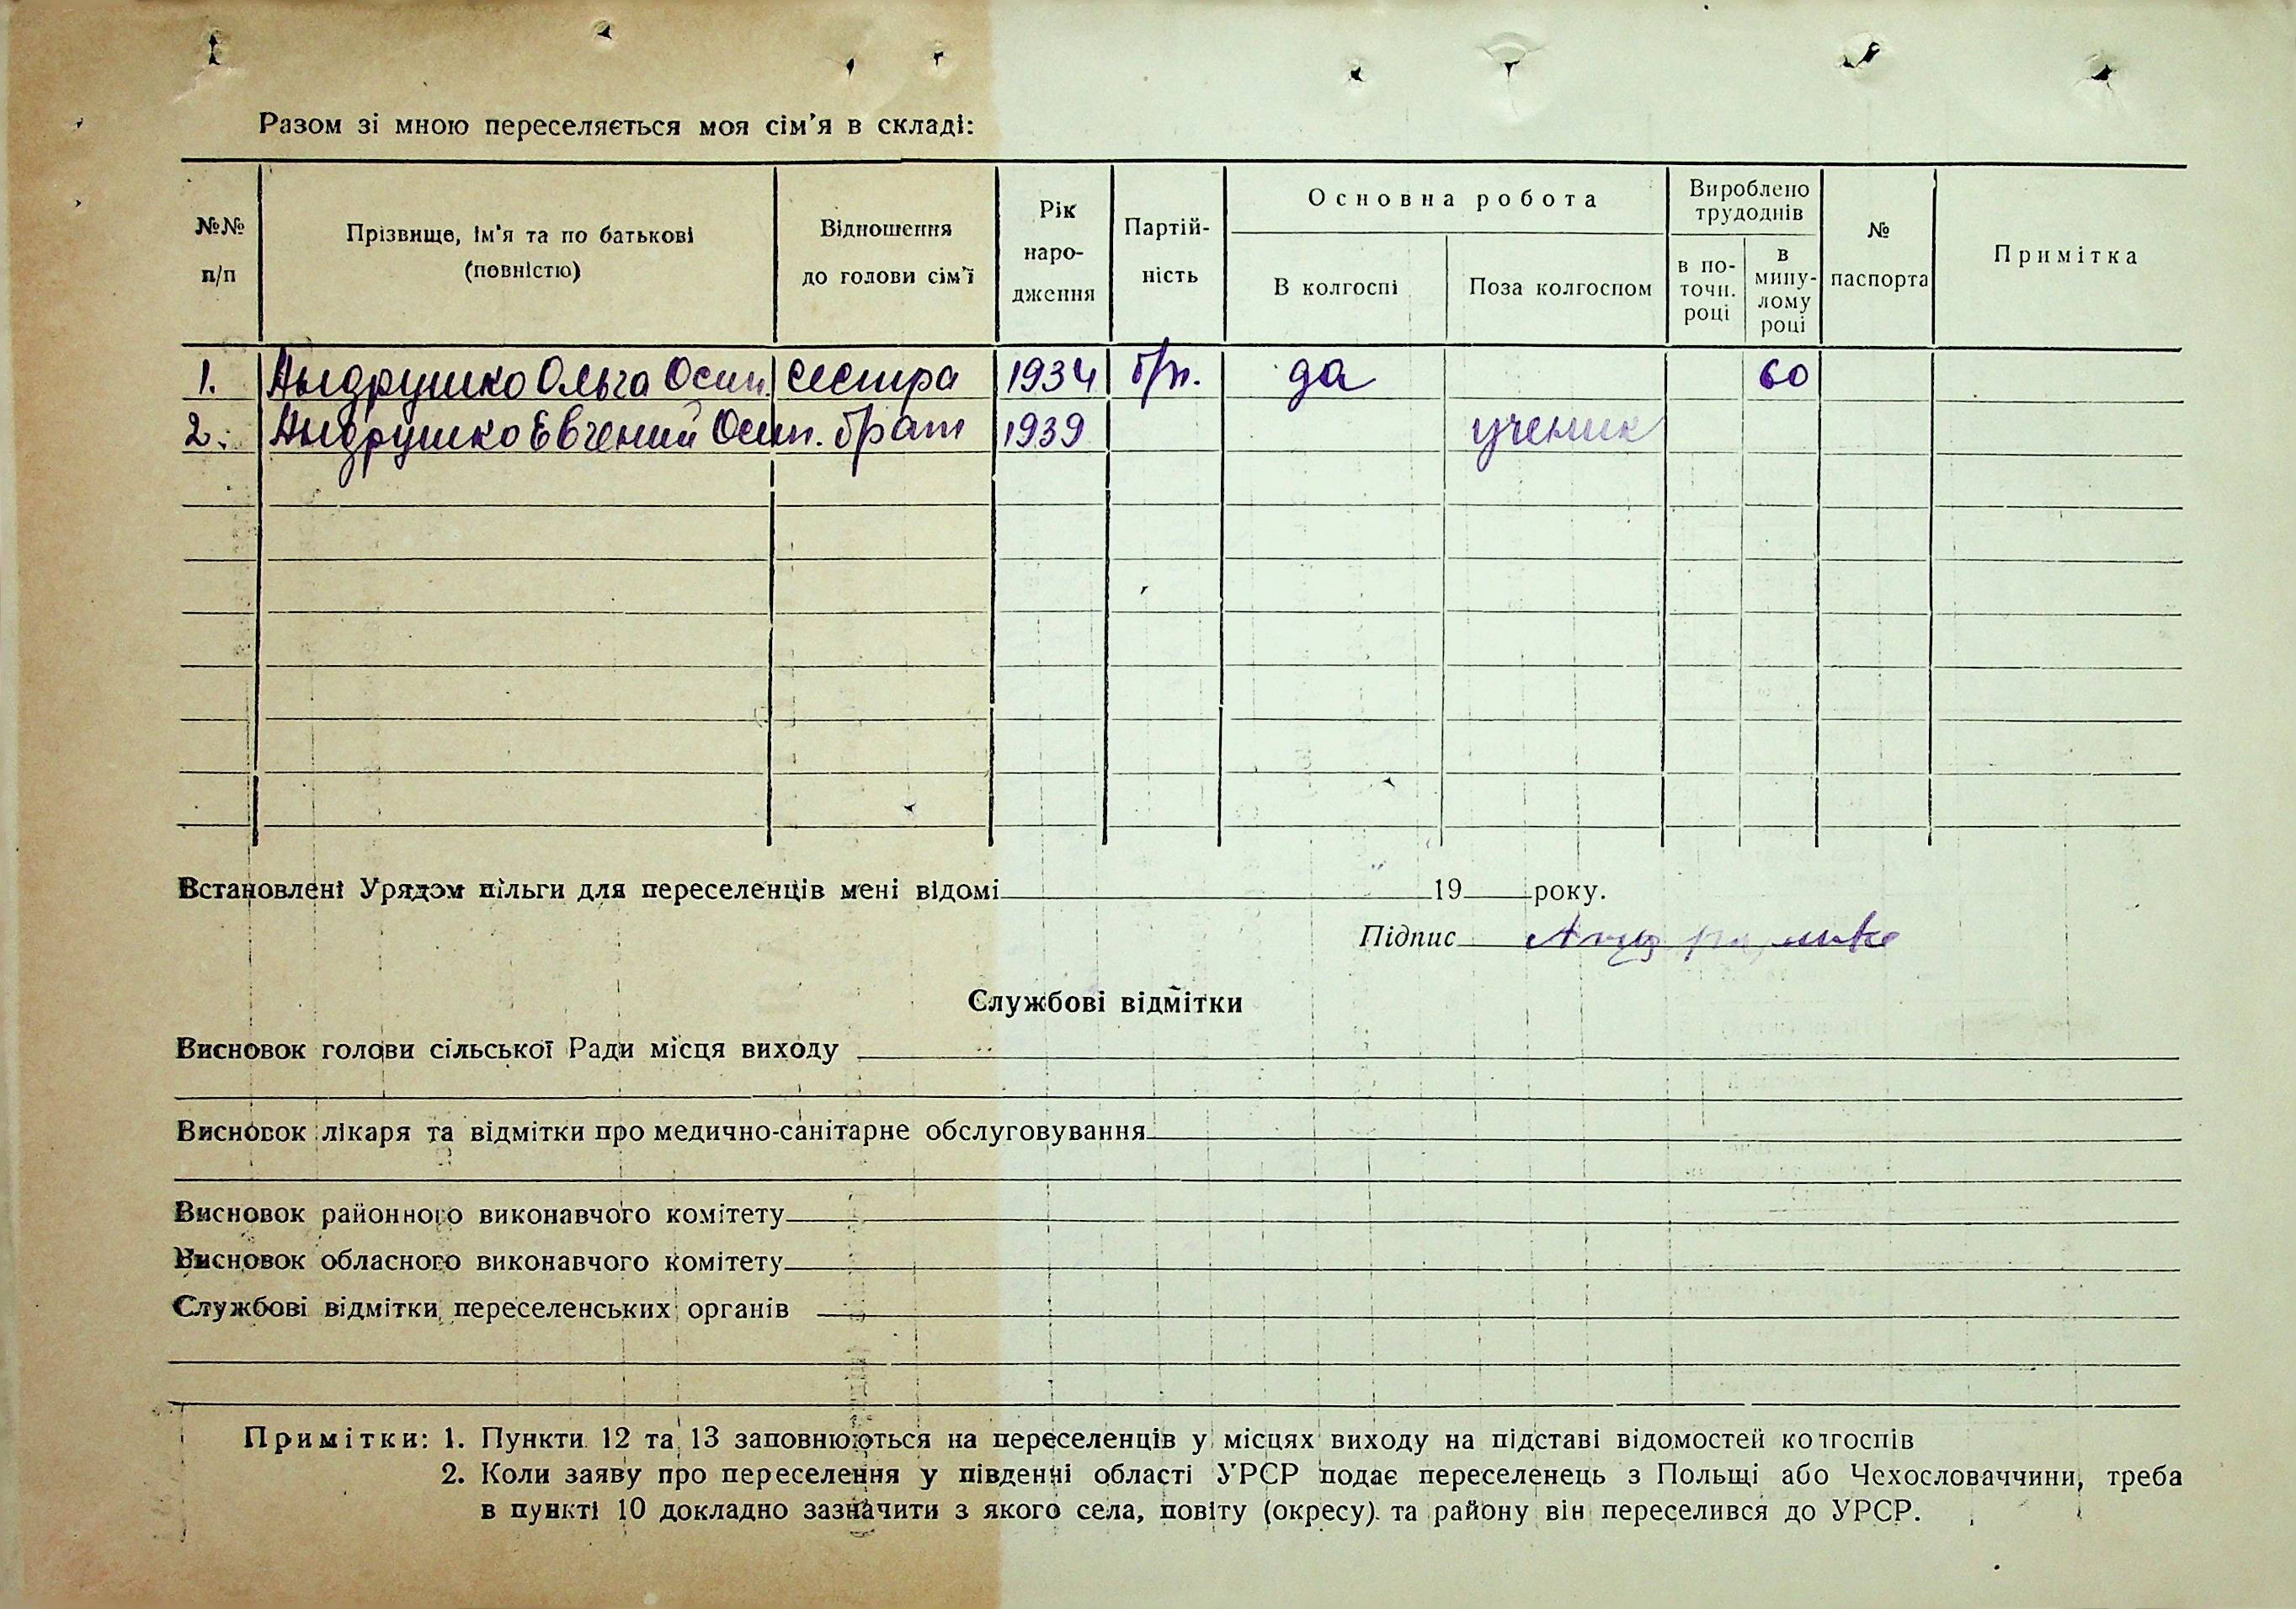 Разом зі мною переселяється моя сім'я в складі:
№№ п/п | Прізвище, ім'я та по батькові (повністю) | Відношення до голови сім'ї | Рік народження | Партійність | Основна робота | Вироблено трудоднів | № паспорта | Примітка
В колгоспі | Поза колгоспом | в поточн. році | в минулому році
1. | Андрушко Ольга Осип. | сестра | 1934 | б/п. | да | 60
2. | Андрушко Евгений Осип. | брат | 1939 | ученик
Встановлені Урядом пільги для переселенців мені відомі 19 року.
Підпис Андрушко
Службові відмітки
Висновок голови сільської Ради місця виходу
Висновок лікаря та відмітки про медично-санітарне обслуговування
Висновок районного виконавчого комітету
Висновок обласного виконавчого комітету
Службові відмітки переселенських органів
Примітки: 1. Пункти 12 та 13 заповнюються на переселенців у місцях виходу на підставі відомостей колгоспів
2. Коли заяву про переселення у південні області УРСР подає переселенець з Польщі або Чехословаччини, треба
в пункті 10 докладно зазначити з якого села, повіту (окресу) та району він переселився до УРСР.